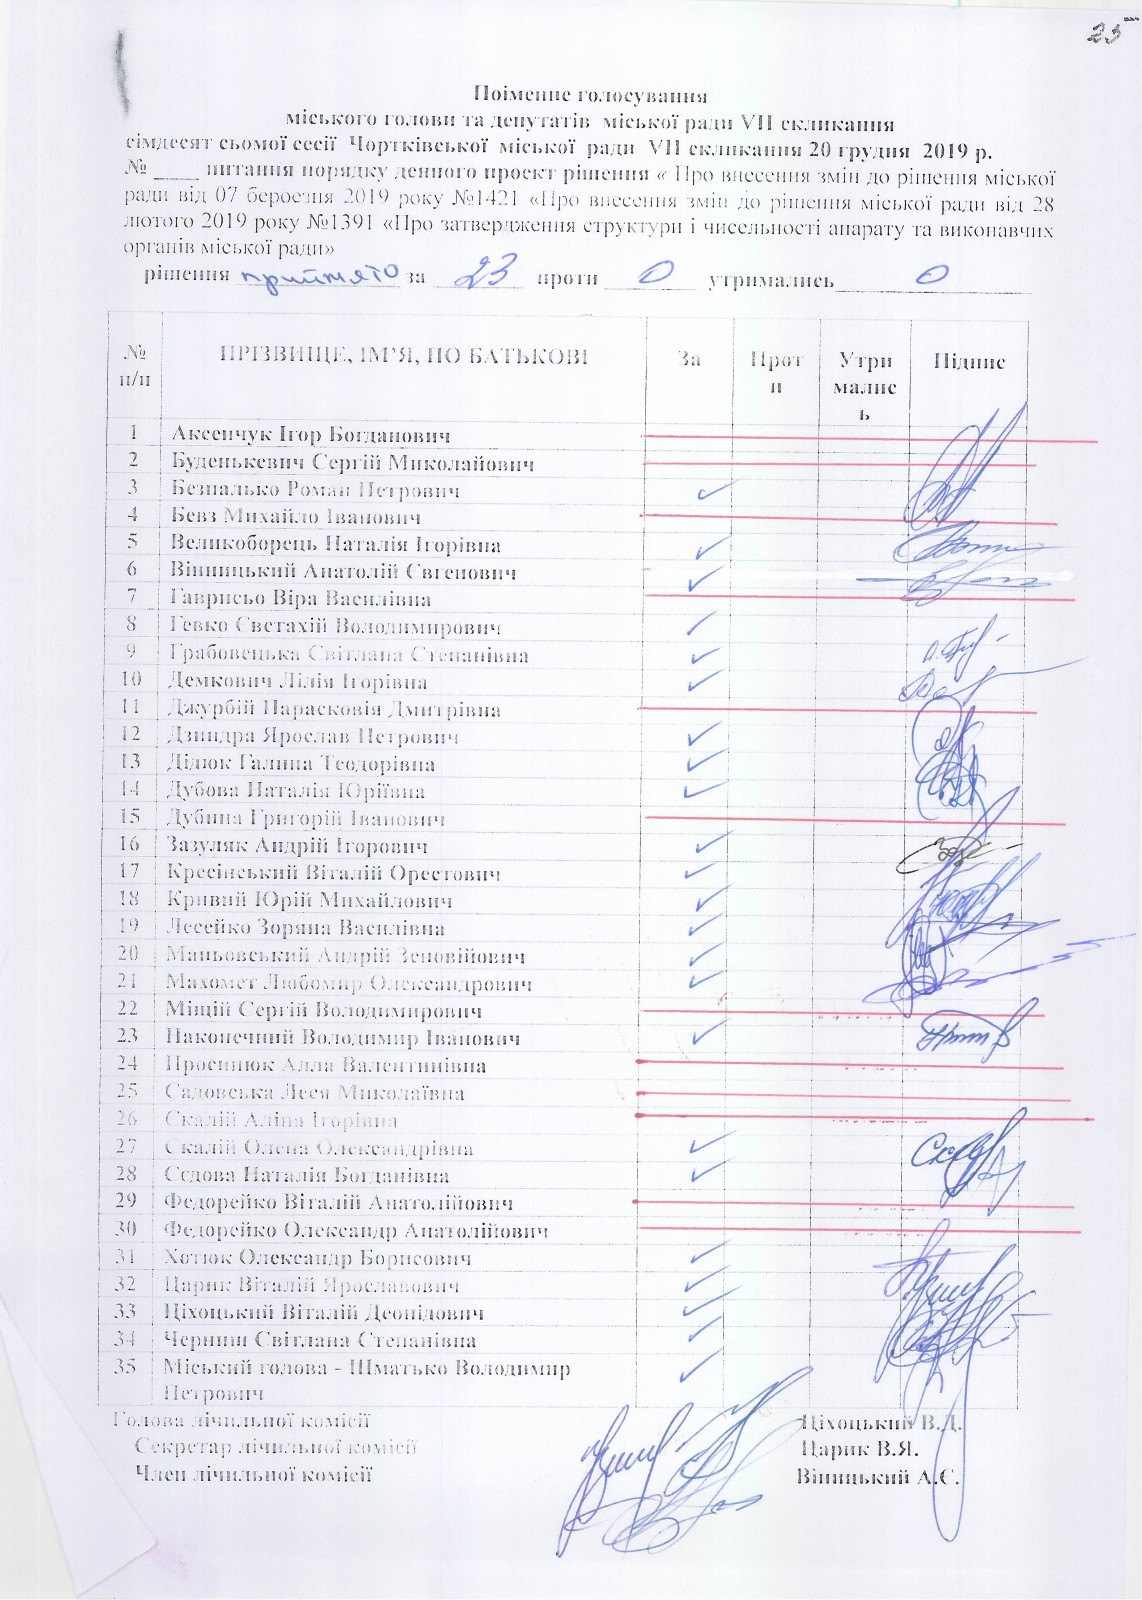 25
Поіменне голосування
міського голови та депутатів міської ради VII скликання
сімдесят сьомої сесії Чортківської міської ради VII скликання 20 грудня 2019 р.
№ ____ питання порядку денного проект рішення « Про внесення змін до рішення міської
ради від 07 березня 2019 року №1421 «Про внесення змін до рішення міської ради від 28
лютого 2019 року №1391 «Про затвердження структури і чисельності апарату та виконавчих
органів міської ради»
рішення прийнято за 23 проти 0 утримались 0
№ п/п ПРІЗВИЩЕ, ІМ'Я, ПО БАТЬКОВІ За Проти Утрималис ь Підпис
1 Аксенчук Ігор Богданович
2 Буденькевич Сергій Миколайович
3 Безпалько Роман Петрович ✓
4 Бевз Михайло Іванович
5 Великоборець Наталія Ігорівна ✓
6 Вінницький Анатолій Євгенович ✓
7 Гаврисьо Віра Василівна
8 Гевко Євстахій Володимирович ✓
9 Грабовецька Світлана Степанівна ✓
10 Демкович Лілія Ігорівна ✓
11 Джурбій Парасковія Дмитрівна
12 Дзиндра Ярослав Петрович ✓
13 Дідюк Галина Теодорівна ✓
14 Дубова Наталія Юріївна ✓
15 Дубина Григорій Іванович
16 Зазуляк Андрій Ігорович ✓
17 Кресінський Віталій Орестович ✓
18 Кривий Юрій Михайлович ✓
19 Лесейко Зоряна Василівна ✓
20 Маньовський Андрій Зеновійович ✓
21 Махомет Любомир Олександрович ✓
22 Міщій Сергій Володимирович
23 Наконечний Володимир Іванович ✓
24 Просинюк Алла Валентинівна
25 Садовська Леся Миколаївна
26 Скалій Аліна Ігорівна
27 Скалій Олена Олександрівна ✓
28 Сєдова Наталія Богданівна ✓
29 Федорейко Віталій Анатолійович
30 Федорейко Олександр Анатолійович
31 Хотюк Олександр Борисович ✓
32 Царик Віталій Ярославович ✓
33 Ціхоцький Віталій Леонідович ✓
34 Чернин Світлана Степанівна ✓
35 Міський голова - Шматько Володимир ✓
Петрович
Голова лічильної комісії Ціхоцький В.Л.
Секретар лічильної комісії Царик В.Я.
Член лічильної комісії Вінницький А.Є.